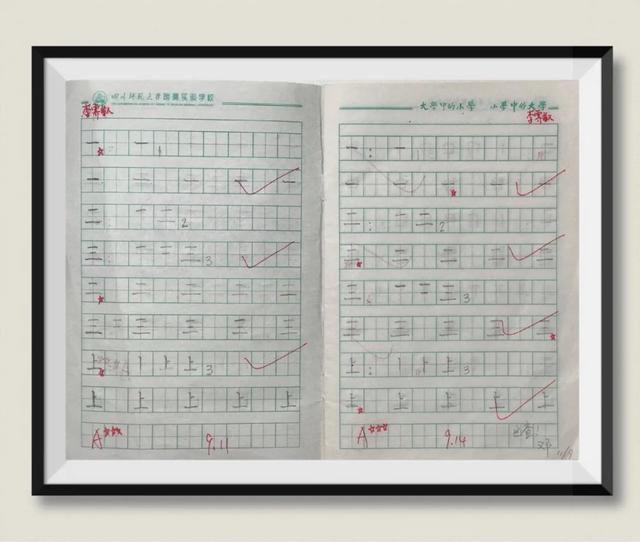 四川师范大学附属实验学校
一 一 1
一 一 一 一 一
二 一 二 2
三 一 二 三 3
二 二 二 二 二
三 三 三 三 三 三
上 丨 上 上 3
上 上 上 上 上
A
9.11
大学中的小学 小学中的大学
一: 一
一 一 一 一 一
二: 一 二 2
二 二 二 二 二
三: 一 二 三 3
三 三 三 三 三
上: 丨 上 上 3
上 上 上 上 上
A
9.14
已查!
邓